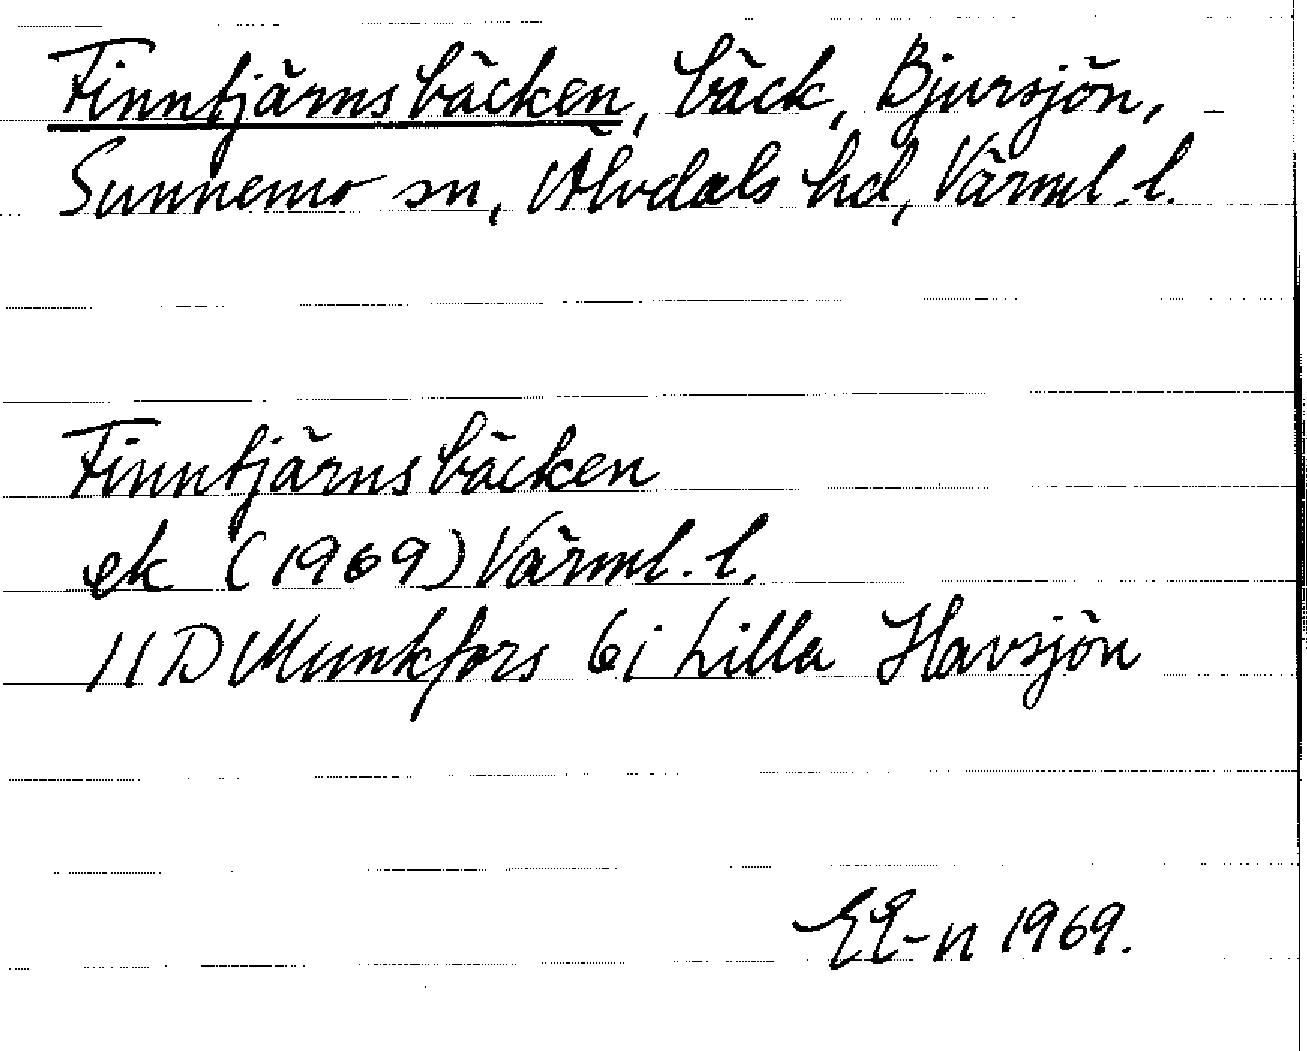 Finntjärnsbäcken, bäck, Bjursjön,
Sunnemo sn, Älvdals hd, Värml. l.
Finntjärnsbäcken
ek (1969) Värml. l.
11 D Munkfors 6i Lilla Havsjön
EE-n 1969.